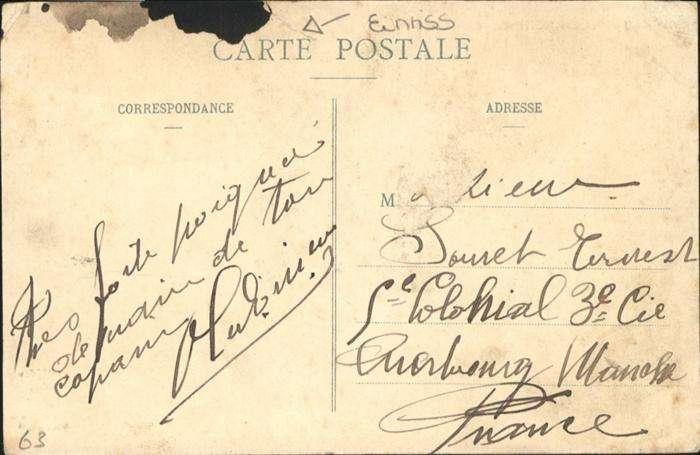 Einriss
CARTE POSTALE
CORRESPONDANCE
ADRESSE
Mosieur
Ernest
5e Colonial 3e Cie
Cherbourg Manche
France
forte poignée
de main de ton
copain
63